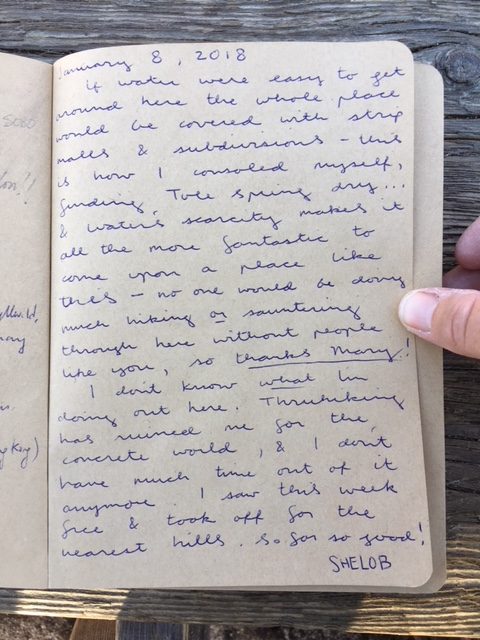 January 8, 2018
if water were easy to get
around here the whole place
would be covered with strip
malls & subdivisions - this
is how I consoled myself,
finding Tule Spring dry...
& water's scarcity makes it
all the more fantastic to
come upon a place like
this - no one would be doing
much hiking or sauntering
through here without people
like you, so thanks Mary!
I don't know what I'm
doing out here. Thruhiking
has ruined me for the
concrete world, & I don't
have much time out of it
anymore. I saw this week
free & took off for the
nearest hills. So far so good!
SHELOB